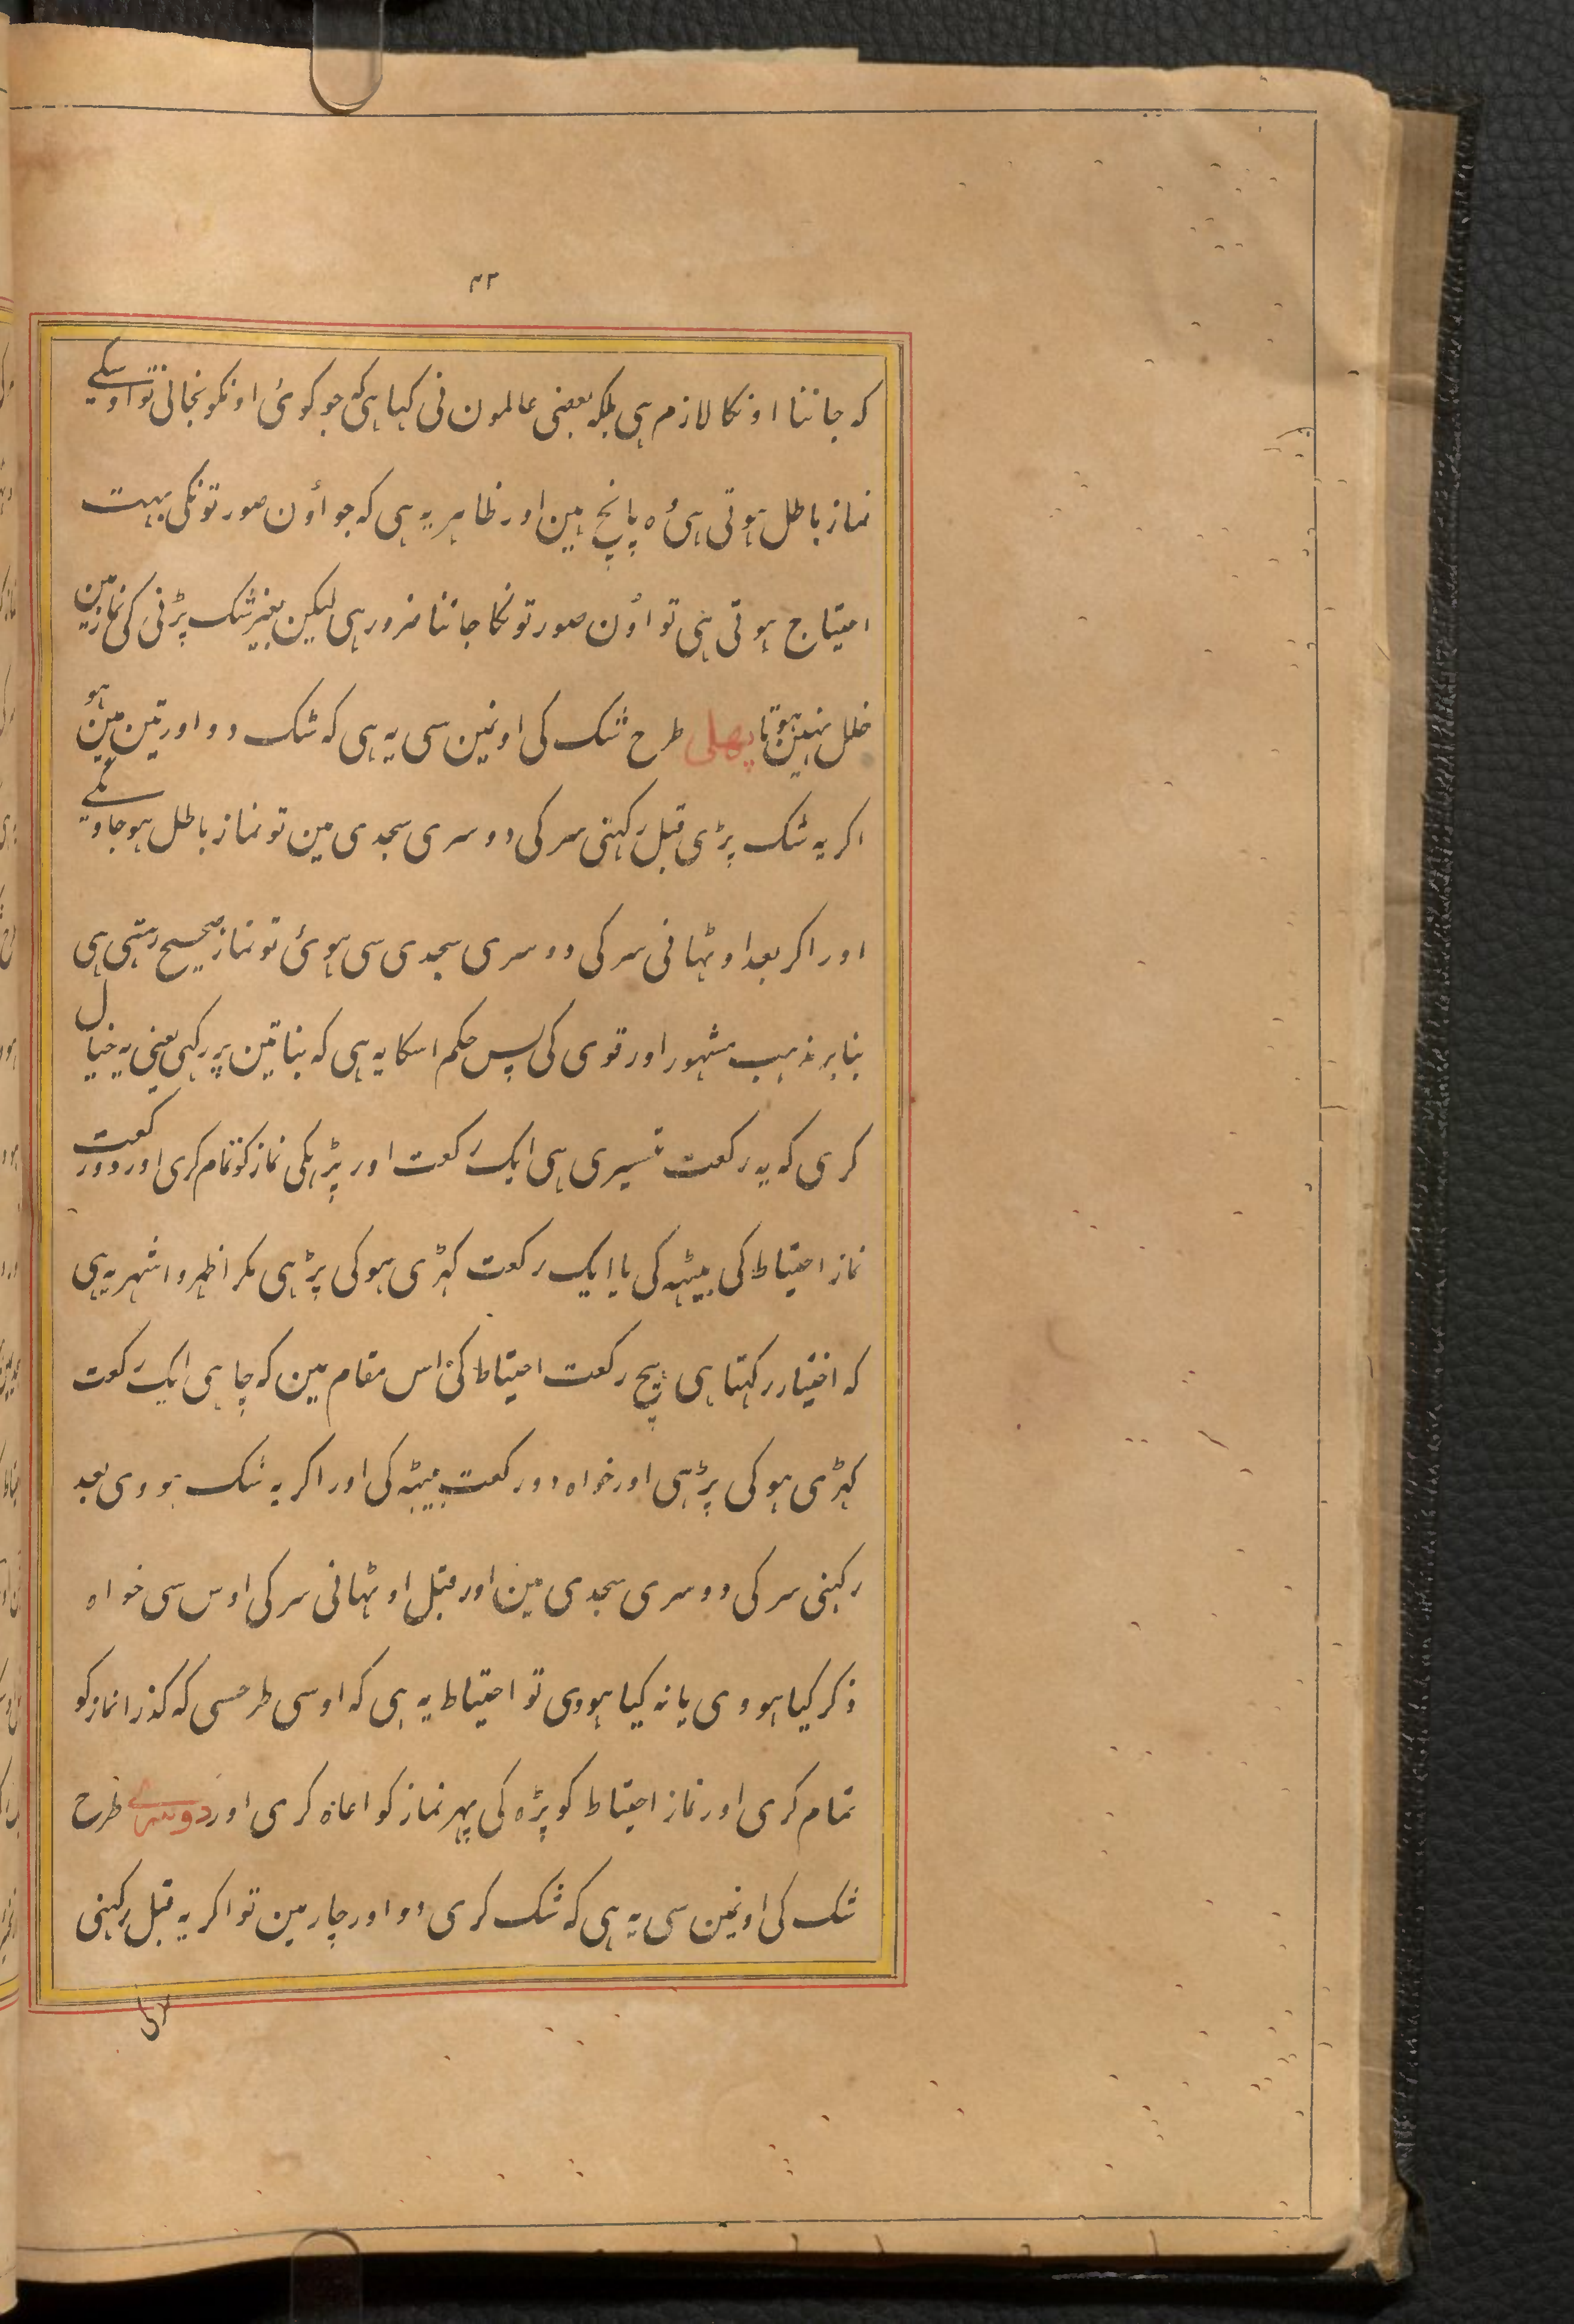 ۴۲
که جاننا اونکا لازم ہی بلکہ بعضی عالمون نی کہا ہی کہ جو کوئ اونکو نجانی تو اوسکے
نماز باطل ہوتی ہی وُہ پانچ ہین اور ظاہر یہ ہی کہ جو اُون صورتونکی بہت
احتیاج ہوتی ہی تو اُون صورتونکا جاننا ضرور ہی لیکن بغیر شک پڑنی کی نماز مین
خلل نہین ہوتا پھلی طرح شک کی اونمین سی یہ ہی کہ شک دو اور تین مین ہو
اکر یہ شک پڑی قبل رکہنی سر کی دوسری سجدی مین تو نماز باطل ہو جاویکے
اور اکر بعد اوٹہانی سر کی دوسری سجدی سی ہوئ تو نماز صحیح رہتی ہی
بنابر مذہب مشہور اور قوی کی پس حکم اسکا یہ ہی کہ بنا تین پر رکہی یعنی یہ خیال
کری کہ یہ رکعت تیسری ہی ایک رکعت اور پڑہکی نماز کو تمام کری اور دو رکعت
نماز احتیاط کی بیٹہہ کی یا ایک رکعت کہڑی ہو کی پڑہی مکر اظہر و اشہر یہ ہی
که اختیار رکہتا ہی بیچ رکعت احتیاط کی اس مقام مین کہ چاہی ایک رکعت
کہڑی ہو کی پڑہی اور خواہ دو رکعت بیٹہہ کی اور اکر یہ شک ہووی بعد
رکہنی سر کی دوسری سجدی مین اور قبل اوٹہانی سر کی اوس سی خواہ
ذکر کیا ہووی یا نہ کیا ہووی تو احتیاط یہ ہی کہ اوسی طرحسی کہ کذرا نماز کو
تمام کری اور نماز احتیاط کو پڑہ کی پہر نماز کو اعادہ کری اور دوسرے طرح
شک کی اونمین سی یہ ہی کہ شک کری دو اور چار مین تو اکر یہ قبل رکہنی